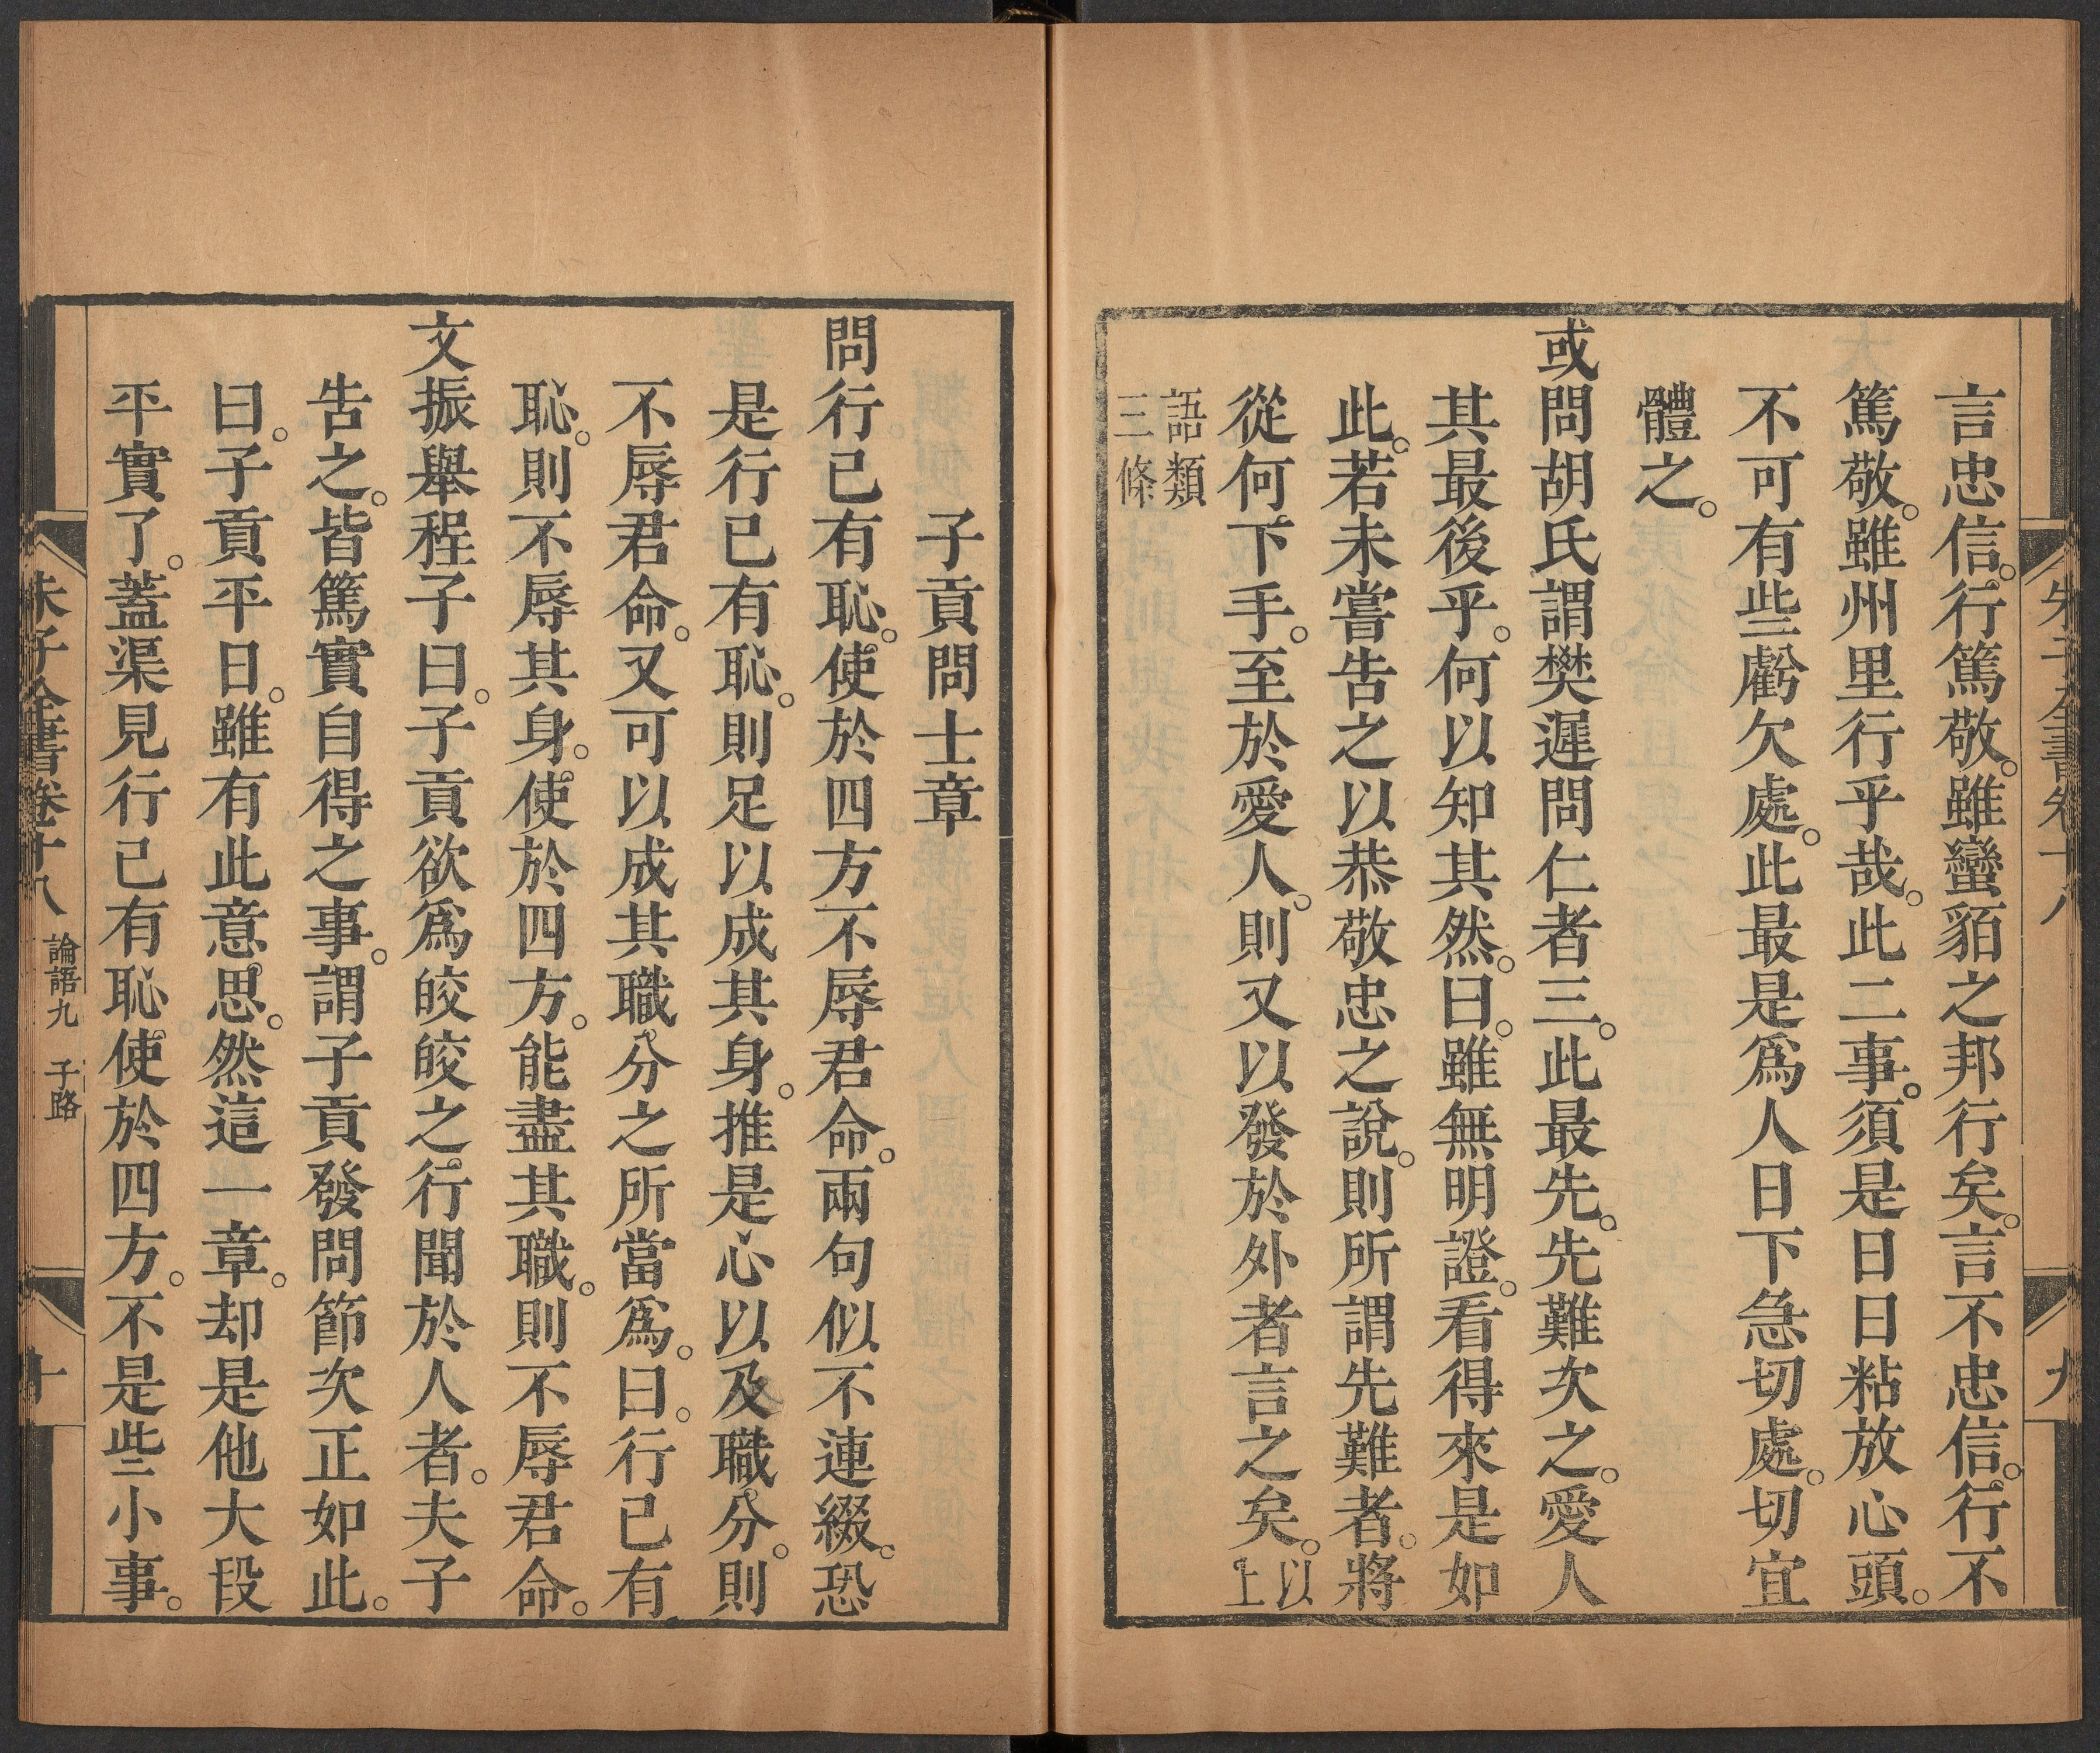 言忠信。行篤敬。雖蠻貊之邦行矣。言不忠信。行不
篤敬。雖州里行乎哉。此二事。須是日日粘放心頭。
不可有些虧欠處。此最是爲人日下急切處。切宜
體之。
或問胡氏謂樊遲問仁者三。此最先。先難次之。愛人
其最後乎。何以知其然。曰。雖無明證。看得來是如
此。若未嘗告之以恭敬忠之說。則所謂先難者。將
從何下手。至於愛人。則又以發於外者言之矣。以上
語類三條
子貢問士章
問行己有恥。使於四方不辱君命。兩句似不連綴。恐
是行己有恥。則足以成其身。推是心以及職分。則
不辱君命。又可以成其職分之所當爲。曰。行己有
恥。則不辱其身。使於四方。能盡其職。則不辱君命。
文振舉程子曰。子貢欲爲皎皎之行聞於人者。夫子
告之。皆篤實自得之事。謂子貢發問節次正如此。
曰。子貢平日。雖有此意思。然這一章。却是他大段
平實了。蓋渠見行己有恥。使於四方。不是些小事。
朱子全書卷十八 論語九 子路 十
朱子全書卷十八 九